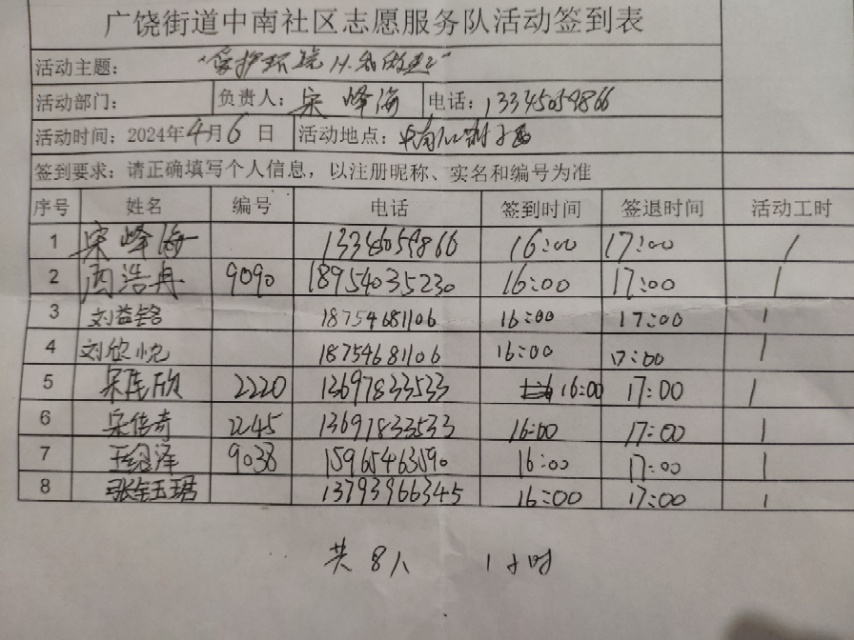 广饶街道中南社区志愿服务队活动签到表
活动主题: "爱护环境从我做起"
活动部门: 负责人: 宋峰海 电话: 13345059866
活动时间: 2024年4月6日 活动地点: 中南
签到要求: 请正确填写个人信息，以注册昵称、实名和编号为准
序号 姓名 编号 电话 签到时间 签退时间 活动工时
1 宋峰海 13345059866 16:00 17:00 1
2 周浩冉 9090 18954035230 16:00 17:00 1
3 刘益铭 18754681106 16:00 17:00 1
4 刘欣悦 18754681106 16:00 17:00 1
5 欣 2220 13697833533 16:00 17:00 1
6 宋传奇 2245 13697833533 16:00 17:00 1
7 王绍泽 9038 15965463590 16:00 17:00 1
8 张钰琚 13793966345 16:00 17:00 1
共8人 1小时